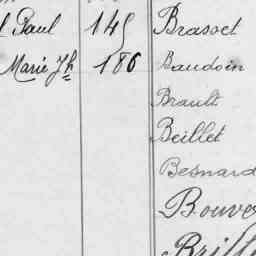 Paul 145 Brasoct
Marie Jh 186 Baudoin
Brault
Beillet
Besnard
Bouve
Brill